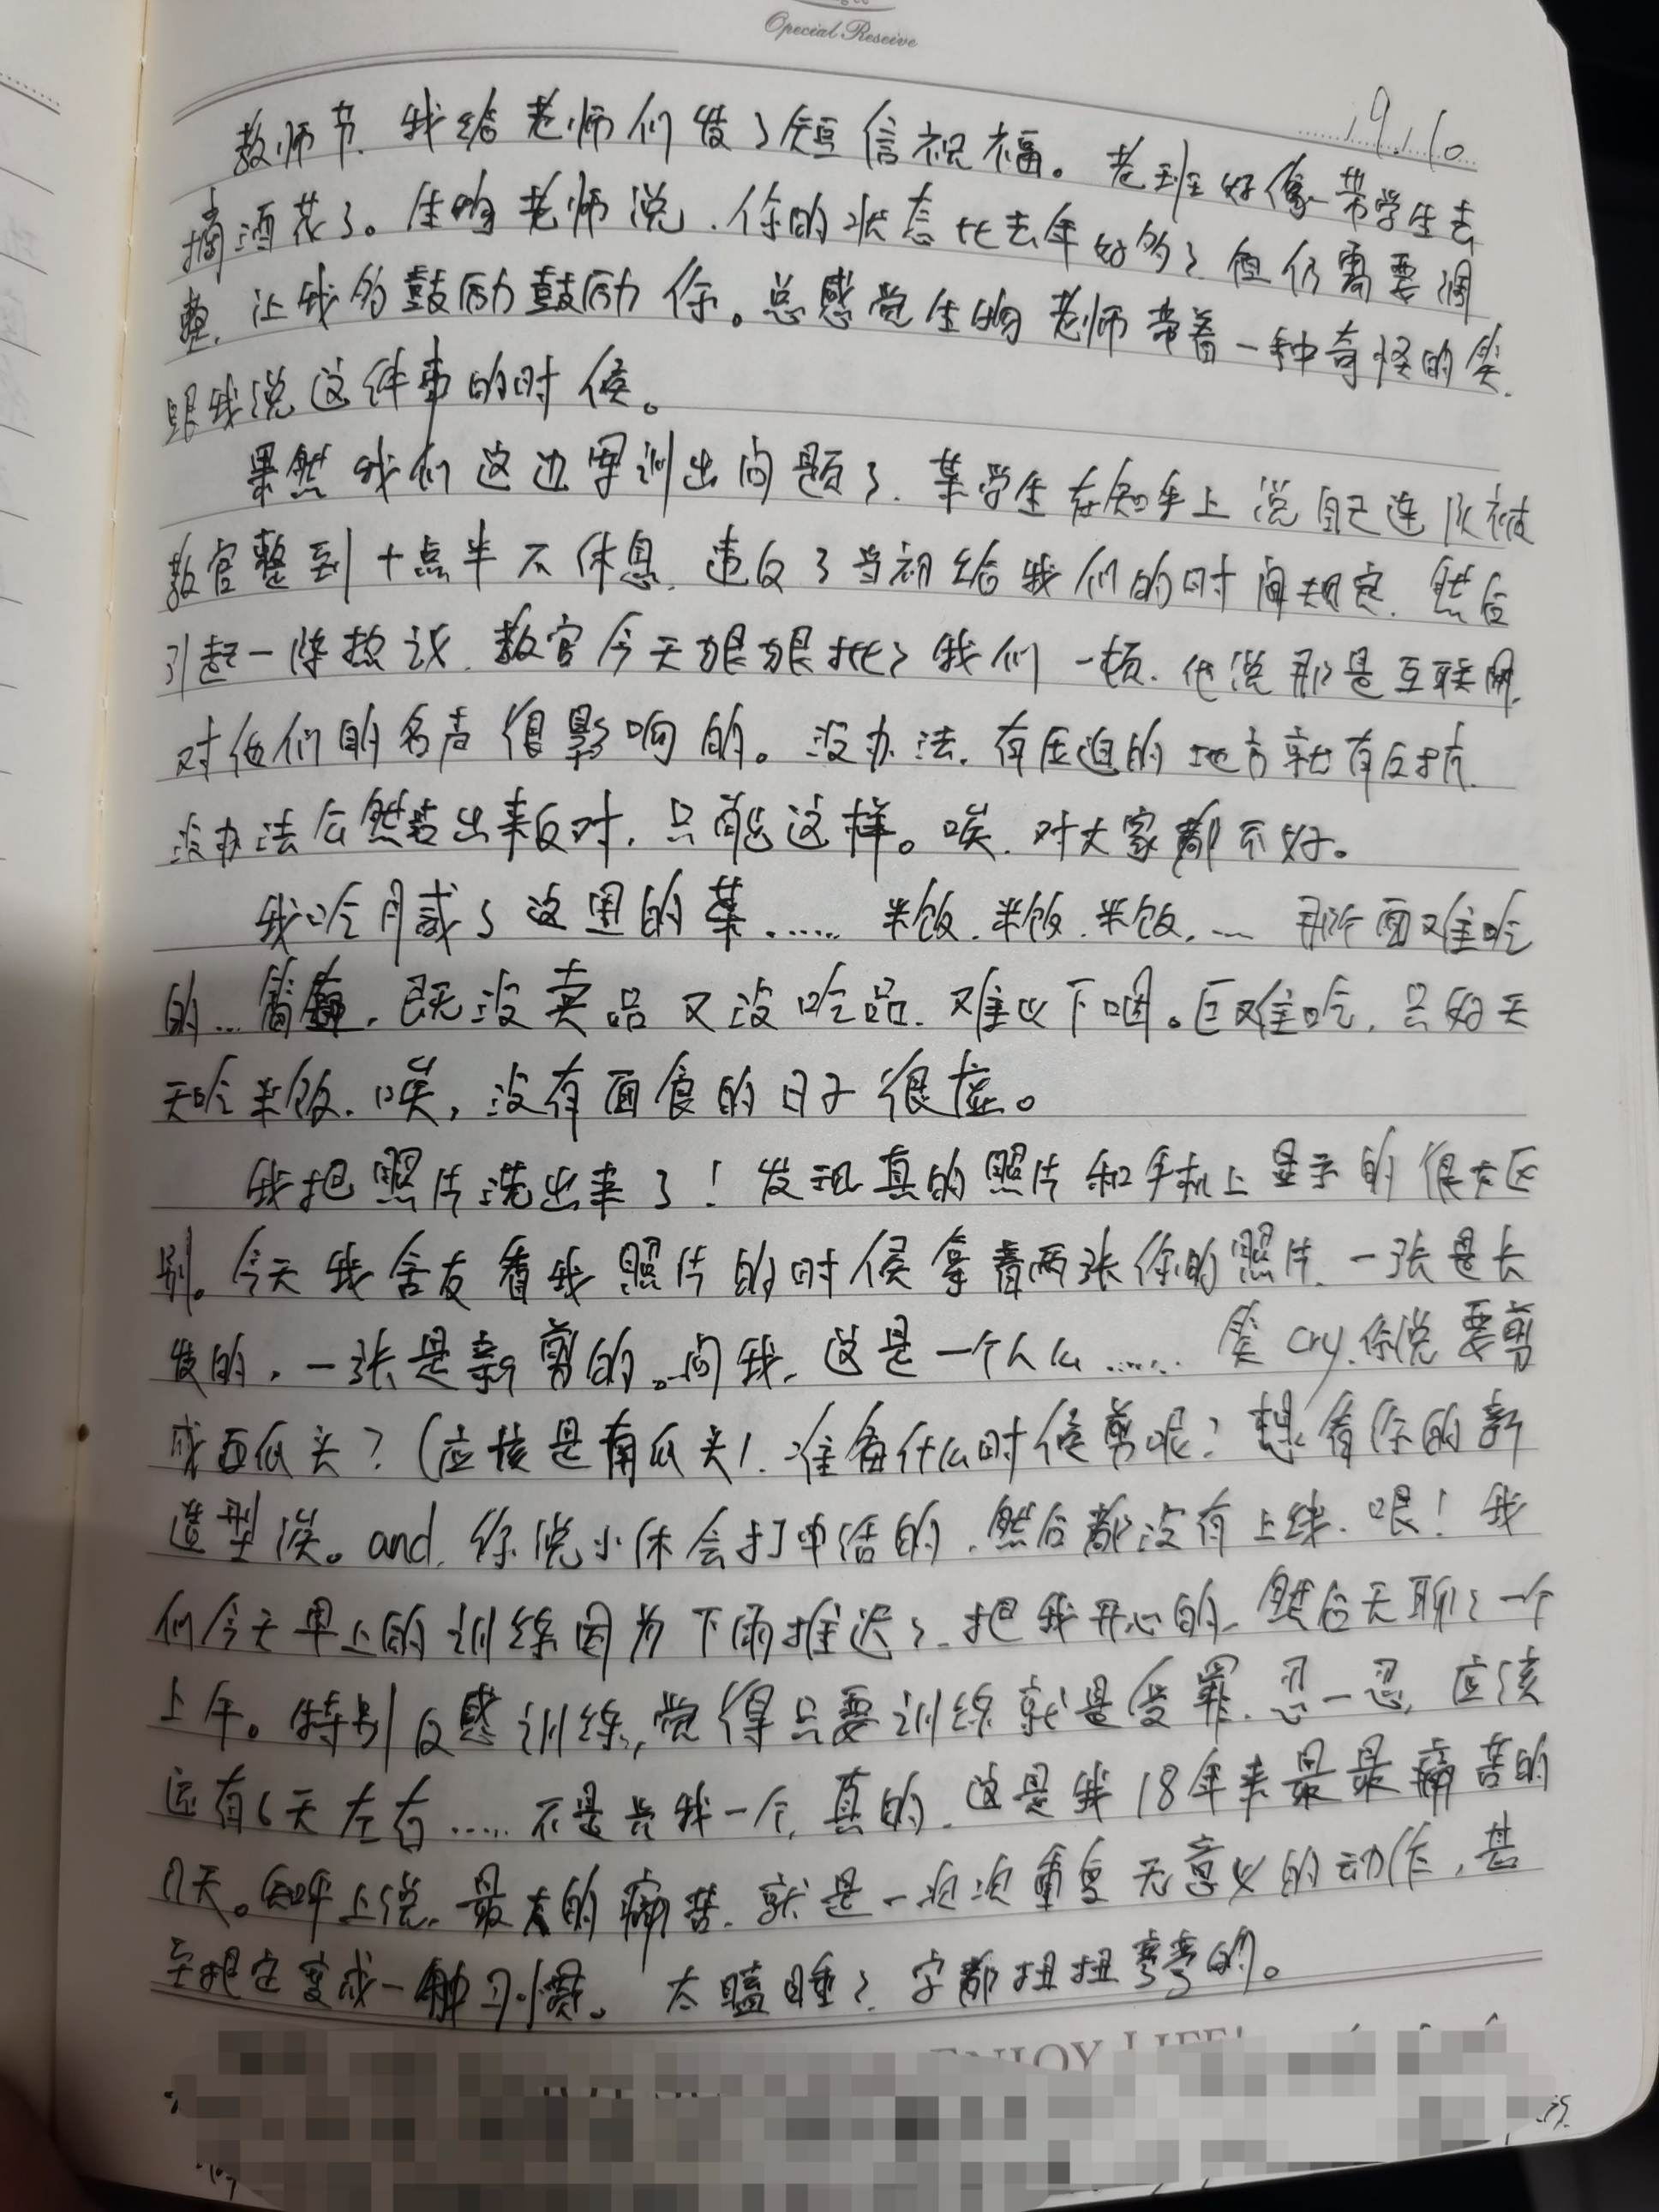 Special Reserve
9.10
教师节,我给老师们发了短信祝福。老班好像带学生去
摘酒花了。生物老师说,你的状态比去年好多了,但仍需要调
整,让我多鼓励鼓励你。总感觉生物老师带着一种奇怪的笑,
跟我说这件事的时候。
果然我们这边军训出问题了,某学生在知乎上说自己连队被
教官整到十点半不休息,违反了当初给我们的时间规定,然后
引起一阵热议,教官今天狠狠批了我们一顿,他说那是互联网,
对他们的名声很影响的。没办法,有压迫的地方就有反抗,
没办法公然站出来反对,只能这样。唉,对大家都不好。
我吃月戒了这里的菜……米饭,米饭,米饭,…那个面难吃
的…,既没卖品又没吃品,难以下咽。巨难吃,只好天
天吃米饭,唉,没有面食的日子很虚。
我把照片洗出来了!发现真的照片和手机上显示的很大区
别。今天我舍友看我照片的时候拿着两张你的照片,一张是长
发的,一张是新剪的。问我,这是一个人么……笑cry,你说要剪
成西瓜头?(应该是南瓜头!,准备什么时候剪呢?想看你的新
造型诶。and,你说小休会打电话的,然后都没有上线,哏!我
们今天早上的训练因为下雨推迟了,把我开心的,然后天聊了一个
上午。特别反感训练,觉得只要训练就是受罪,忍一忍,应该
还有6天左右……不是光我一个,真的,这是我18年来最最痛苦的
几天。知乎上说,最大的痛苦,就是一次次重复无意义的动作,甚
至把它变成一种习惯。太瞌睡了,字都扭扭弯弯的。
ENJOY LIFE!